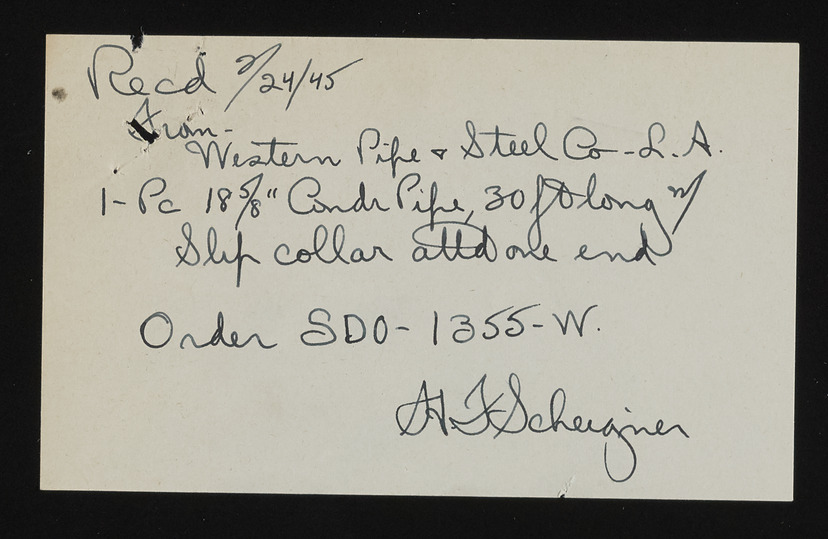 Recd 2/24/45
From-
Western Pipe & Steel Co-L.A.
1-Pc 18 5/8" Condr Pipe, 30 ft long w/
Slip collar attd one end
Order SDO-1355-W.
H.F.